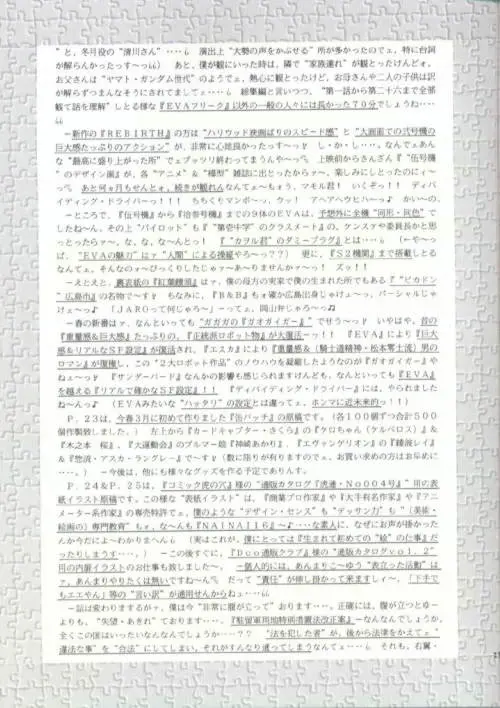 ”と、冬月役の“清川さん”‥‥６ 演出上“大勢の声をかぶせる”所が多かったのでェ，特に台詞
が解らんかったっす～っ６６） あと、僕が観にいった時は、隣で“家族連れ”が観とったけんどォ、
お父さんは“ヤマト・ガンダム世代”のようでェ、熱心に観とったけど、お母さんや二人の子供は訳
が解らずつまんなそうにされてましてェ‥‥６ 総集編と言いつつ、“第一話から第二十六まで全部
観て話を理解”しとる様な『ＥＶＡフリーク』以外の一般の人々には長かった７０分でしょうね‥‥
６６
－新作の『ＲＥＢＩＲＴＨ』の方は“ハリウッド映画ばりのスピード感”と“大画面での弐号機の
巨大感たっぷりのアクション”が、非常に心地良かったっす～っ
な“最高に盛り上がった所”でェプッツリ終わってまうんや～っ
のデザイン画』が、各“アニメ”＆“模型”雑誌に出とったからァ～、楽しみにしとったのにィ～
あと何ヶ月もせんとォ、続きが観れんなんてェ～もォっ、マモル君！ いくぞっ！！ ディバ
イディング・ドライバーっ！！！
－ところで、『伍号機』から『拾参号機』までの９体のＥＶＡは、予想外に全機“同形・同色”で
したね～っ、その上“パイロット”も『“第壱中学”のクラスメート』の、ケンスケや委員長かと思
っとったらァ～、な、な、な～んとっ！ 『“カヲル君”のダミープラグ』とは‥‥６
ば、“ＥＶＡの魅力”はァ“人間”による操縦やろ～っ？？） 更に、『Ｓ２機関』まで搭載しとる
なんてェ、そんなのォ～びっくりしたじゃァ～あ～りませんかァ～っ！ ズッ！！
－えとえと、裏表紙の『紅葉饅頭』はァ、僕の母方の実家で僕の生まれた所でもある『“ピカドン
”広島市』の名物で～す ちなみに、『Ｂ＆Ｂ』もォ確か広島出身じゃけぇ～っ、
けェ～っ （ＪＡＲＯって何じゃろ～♪ーってェ、岡山弁じゃろ～っ）
－春の新番はァ、なんといっても“ガガガの『ガオガイガー』”でせう～っ いやはや、昔の
『重量感＆巨大感』たっぷりの、『正統派ロボット物』が大復活～っ！！ 『ＥＶＡ』により『巨大
感＆リアルなＳＦ設定』が復活され、『エスカ』により『重量感＆（騎士道精神・松本零士流）男の
ロマン』が復権し、この“２大ロボット作品”のノウハウを凝縮したようなのが『ガオガイガー』や
ねェ～っ 『サンダーバード』なんかの影響も感じられますけんども、なんといっても『ＥＶＡ』
を越える『リアルで確かなＳＦ設定』！！ 『ディバイディング・ドライバー』には、やられました
ね～んっ （ＥＶＡみたいな“ハッタリ”の設定とは違ってェ、ホンマに近未来的っ！！）
Ｐ．２３は、今春３月に初めて作りました『缶バッチ』の原稿です。（各１００個ずつ合計５００
個作製致しました。） 左上から『カードキャプター・さくら』の『ケロちゃん（ケルベロス）』＆
『木之本 桜』、『大運動会』のブルマー娘『神崎あかり』、『エヴァンゲリオン』の『綾波レイ』
＆『惣流・アスカ・ラングレー』で～す （数に限りが有りますのでェ、お買い求めの方はお早めに
‥‥。） －今後は、他にも様々なグッズを作る予定でありんす。
Ｐ．２４＆Ｐ．２５は、『コミック虎の穴』様の“通販カタログ『虎通・Ｎｏ００４号』”用の表
紙イラスト原稿です。この様な“表紙イラスト”は、『商業プロ作家』や『大手有名作家』や『アニ
メーター系作家』の専売特許でェ、僕のような“デザイン・センス”も“デッサン力”も“（美術・
絵画の）専門教育”もォ、な～んも『ＮＡＩＮＡＩ１６～♪』‥‥な素人に、なぜにお声が掛かった
んか今だによ～わかりまへん６ （実はこれが、僕にとっては『生まれて初めての“絵”の仕事』だ
ったりしまうす‥‥、） －この後すぐに、『Ｄｏ通販クラブ』様の“通販カタログｖｏｌ．２”
用の内扉イラストのお仕事も致しました～。 －個人的には、あんまりこ～ゆう“表立った活動”は
ァ、あんまりやりたくは無いですね～っ だって“責任”が伸し掛かって来ますしィ～、「下手で
もエエやん」等の“言い訳”が通用せんからねェ‥‥６６
－話は変わりまするがァ、僕は今“非常に腹が立って”おります‥‥。正確には、腹が立つとゆ～
よりも、“失望・あきれ”ております‥‥。『駐留軍用地特別措置法改正案』－なんなんでしょうか、
全くこの国はいったいなんなんでしょうか‥‥？？ “法を犯した者”が、後から法律をかえてェ“
違法な事”を“合法”にしてしまい、それがすんなり通ってしまうなんてェ‥‥６ それも、右翼・